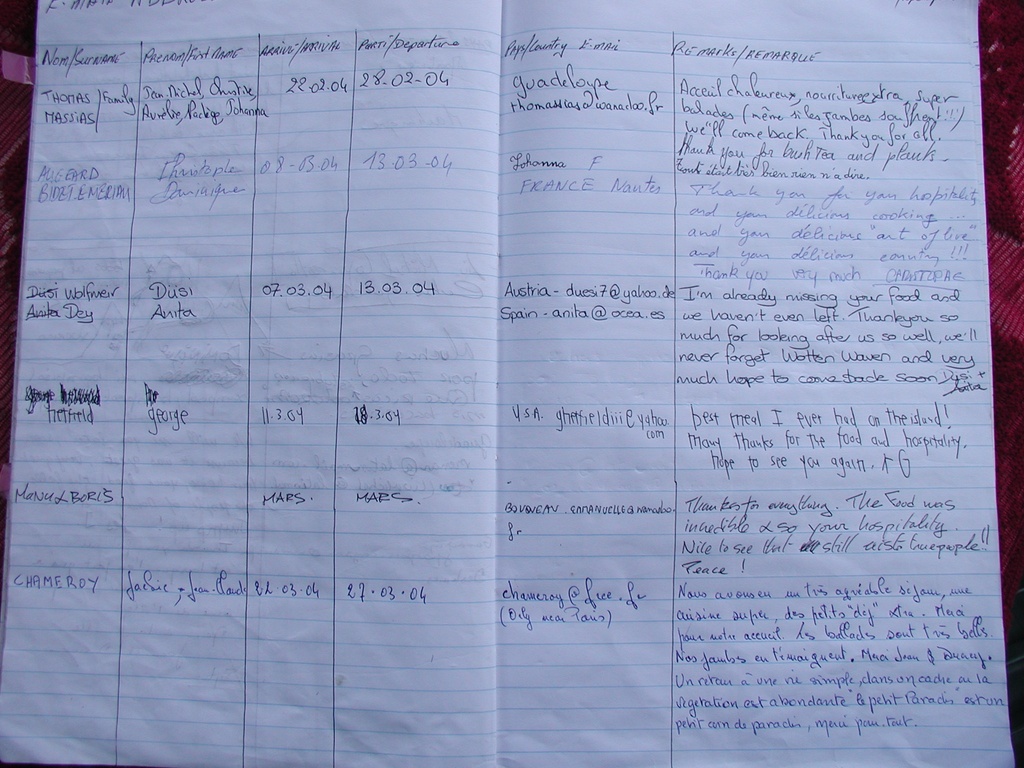 Nom/Surname Prenom/First name Arrivé/Arrival Parti/Departure Pays/Country E-mail Remarks/Remarque
THOMAS / Family Jean Michel, Christine, 22.02.04 28-02-04 Guadeloupe Acceuil chaleureux, nourriture extra, super
MASSIAS/ Aurelie, Johanna thomassias@wanadoo.fr balades (même si les jambes souffrent!!!)
We'll come back. Thank you for all.
Thank you for bush Tea and plants.
Johanna F tout était très bien rien n'a dire.
Christophe 08-03.04 13.03-04 FRANCE Nantes Thank you for your hospitality
Dominique and your délicious cooking ...
and your délicious "art of live"
and your délicious !!!
Thank you very much
Düsi Wolfmeir Düsi 07.03.04 13.03.04 Austria - duesi7@yahoo.de I'm already missing your food and
Anita Dey Anita Spain - anita@ocea.es we haven't even left. Thankyou so
much for looking after us so well, we'll
never forget Wotten Waven and very
much hope to come back soon Düsi +
Anita
hetfield george 11.3.04 18.3.04 U.S.A. ghetfieldiii@yahoo. best meal I ever had on the island!
com Many thanks for the food and hospitality.
hope to see you again. G
MANU & BORIS MARS. MARS. Thanks for everything. The Food was
fr incredible & so your hospitality.
Nice to see that still exists true people!!
Peace!
CHAMEROY Jean-Claude 22.03.04 27.03.04 chameroy@free.fr Nous avons eu un très agréable séjour, une
(Orly near Paris) cuisine super, des petits "déj" xtra. Merci
pour votre accueil. les ballades sont très belles.
Nos jambes en témoignent. Merci Jean &
Un retour à une vie simple, dans un cadre ou la
vegetation est abondante "le petit Paradis" est un
petit coin de paradis, merci pour tout.